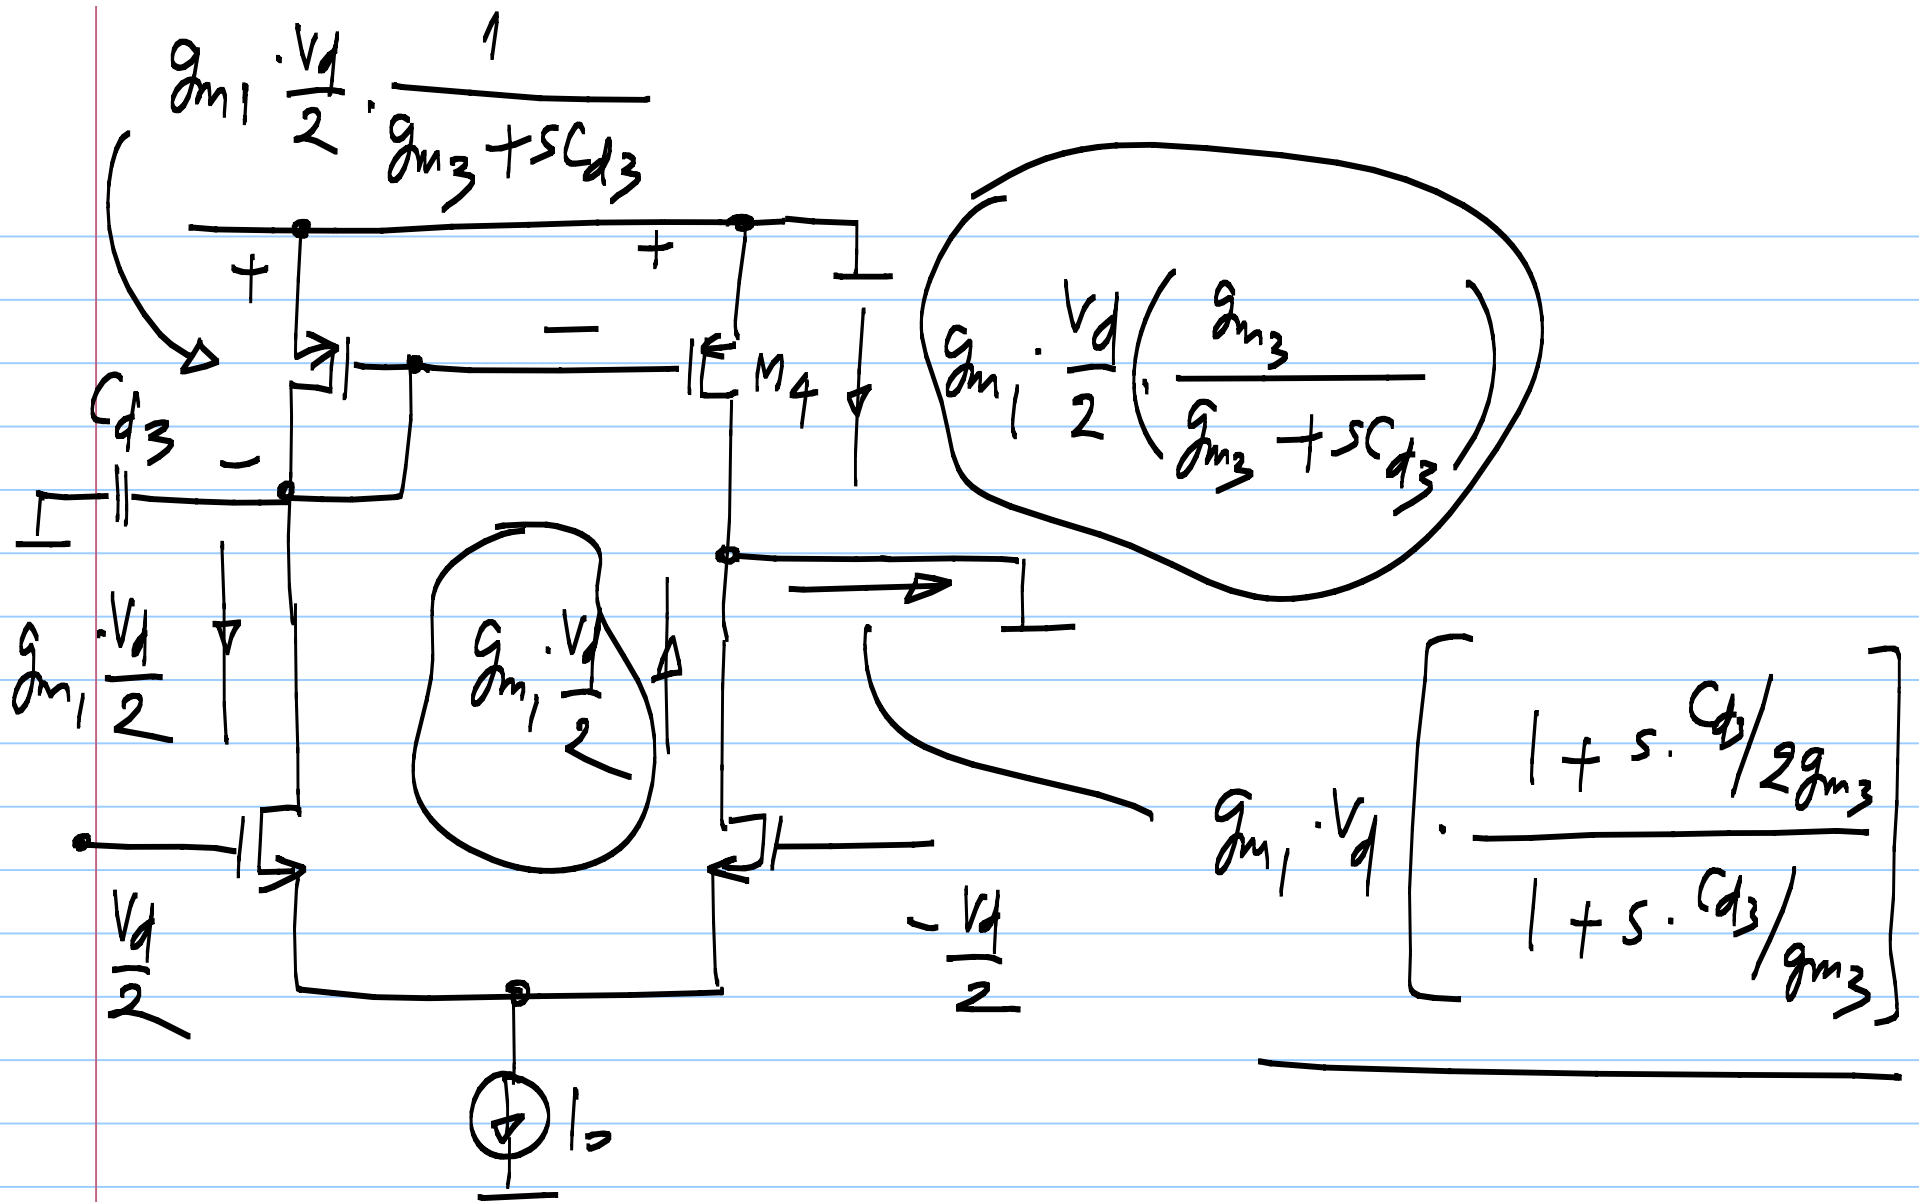 gm1 · Vd/2 · 1/(gm3 + sCd3)
+
+
−
M4
Cd3
−
gm1 · Vd/2 · (gm3/(gm3 + sCd3))
gm1 · Vd/2
gm1 · Vd/2
gm1 · Vd · [(1 + s · Cd3/2gm3)/(1 + s · Cd3/gm3)]
Vd/2
−Vd/2
I0